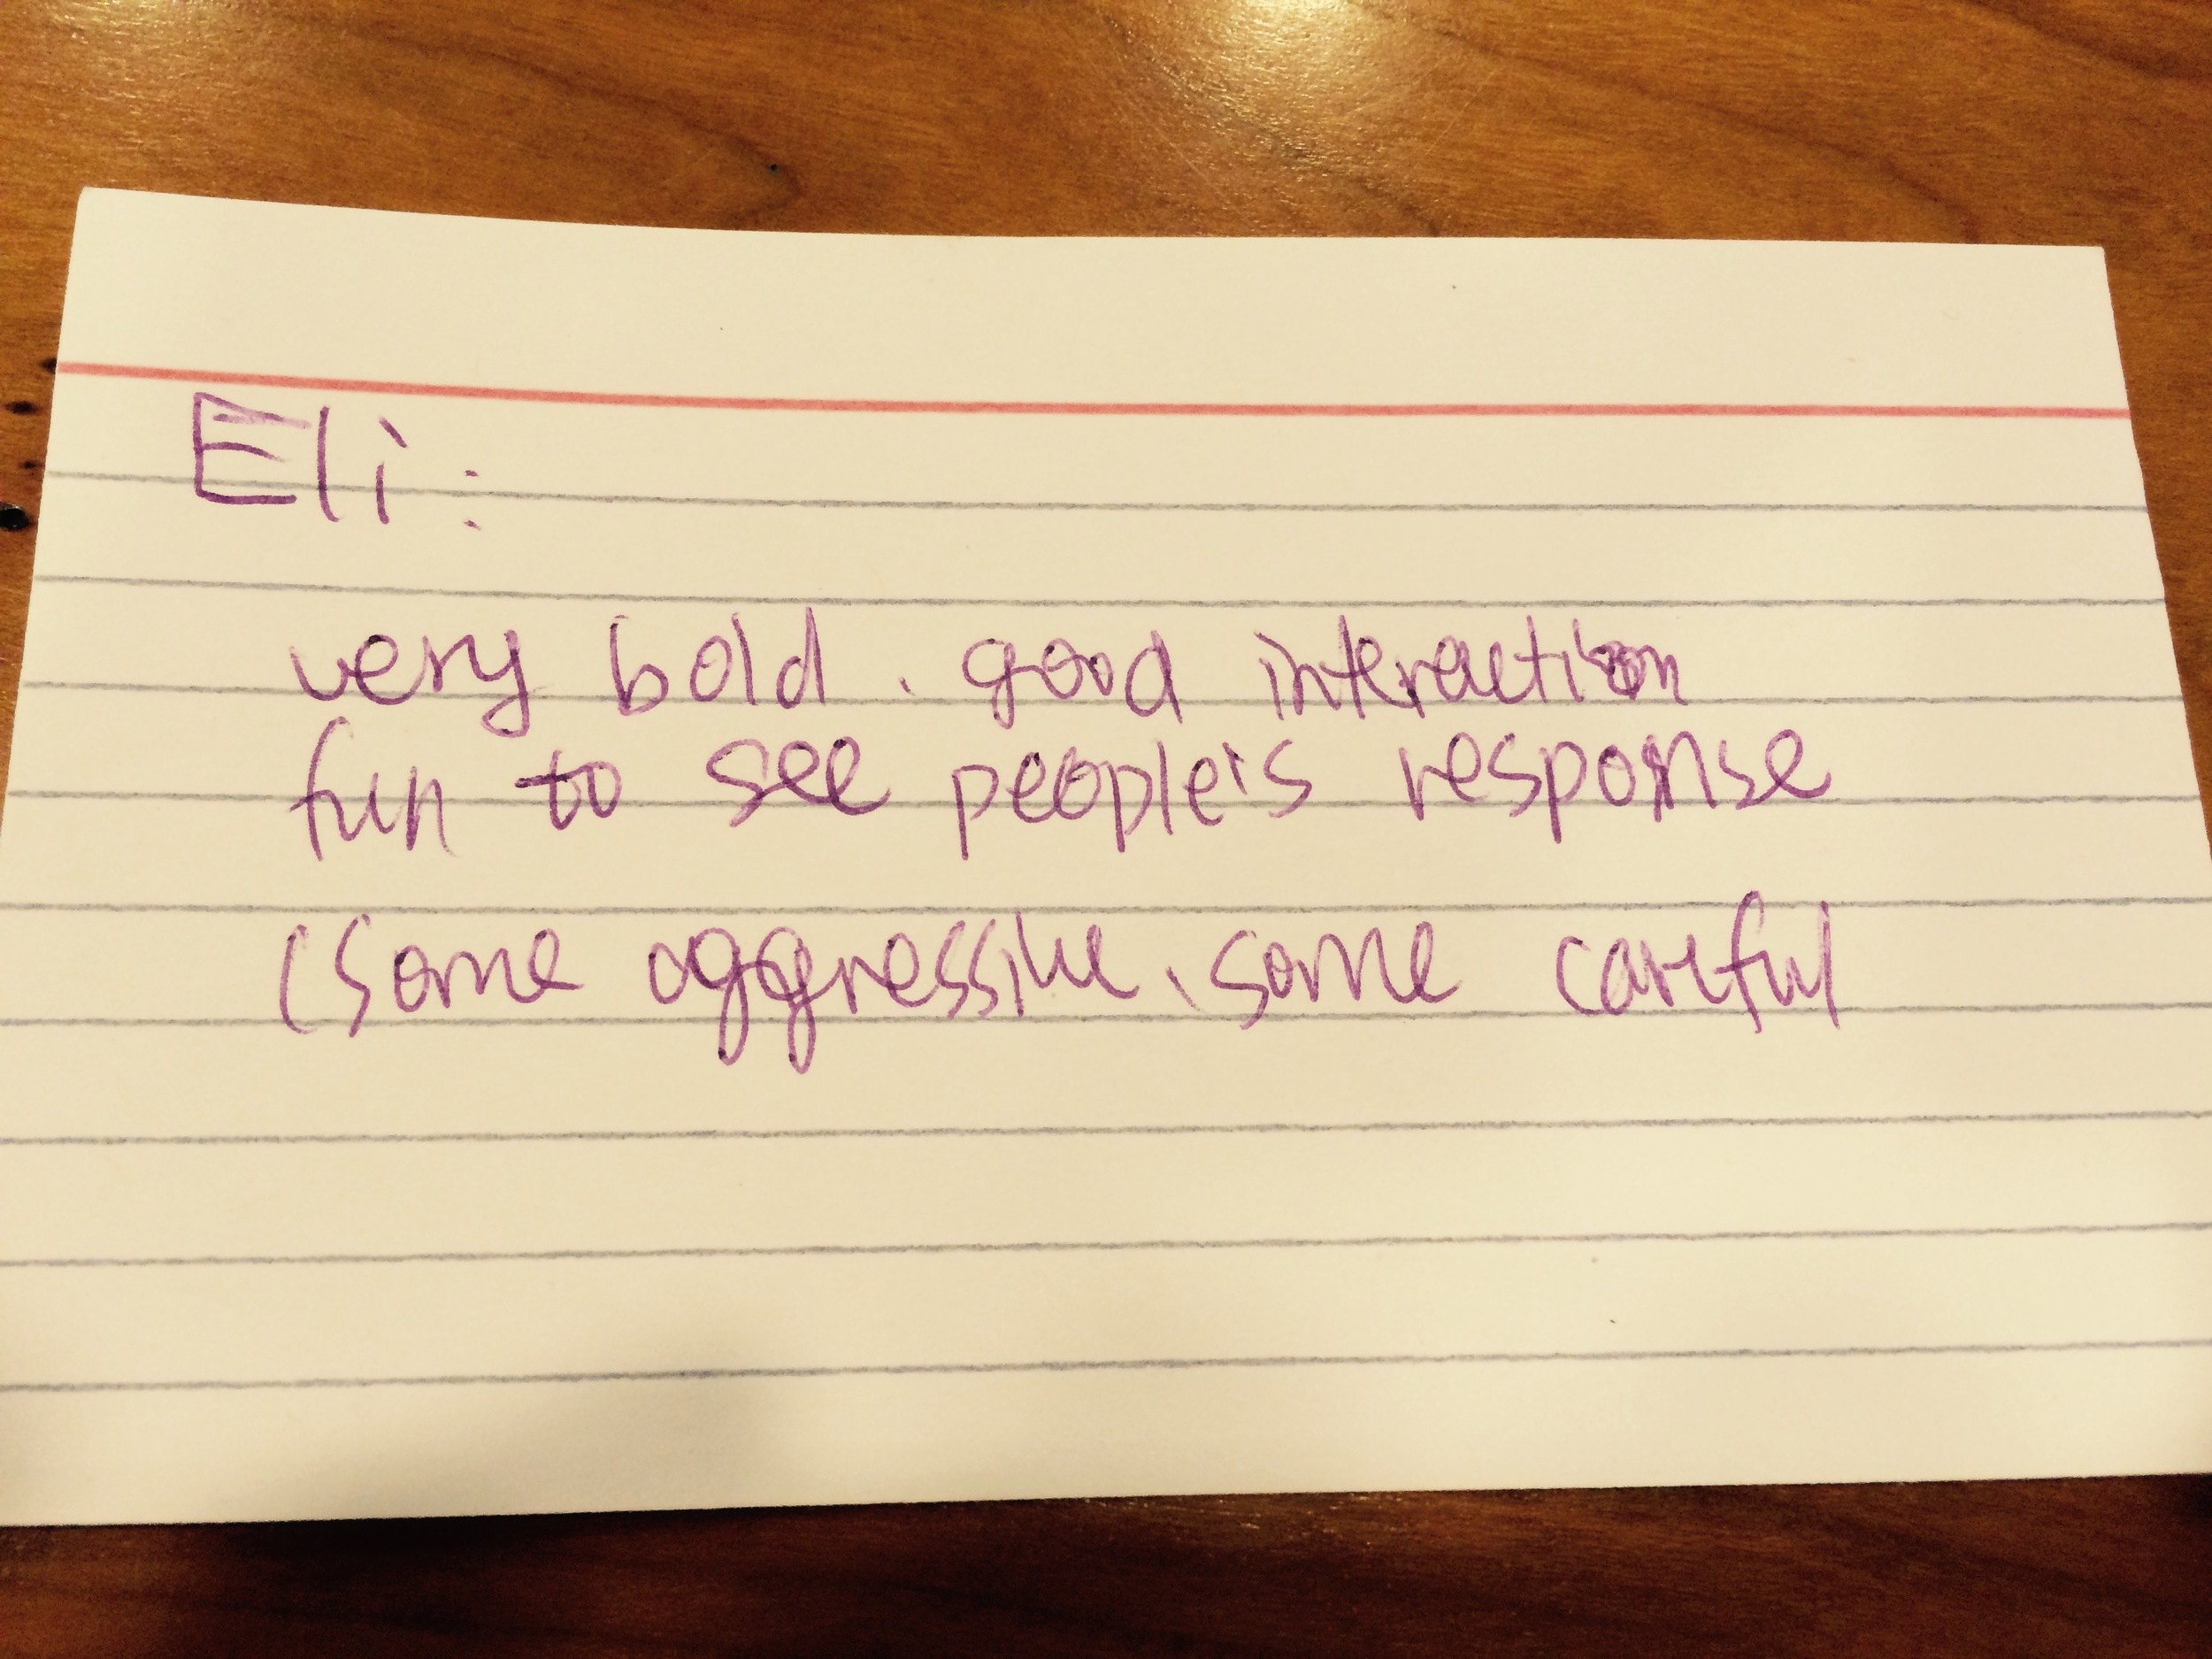 Eli:
very bold. good interaction
fun to see people's response
(some aggressive, some careful